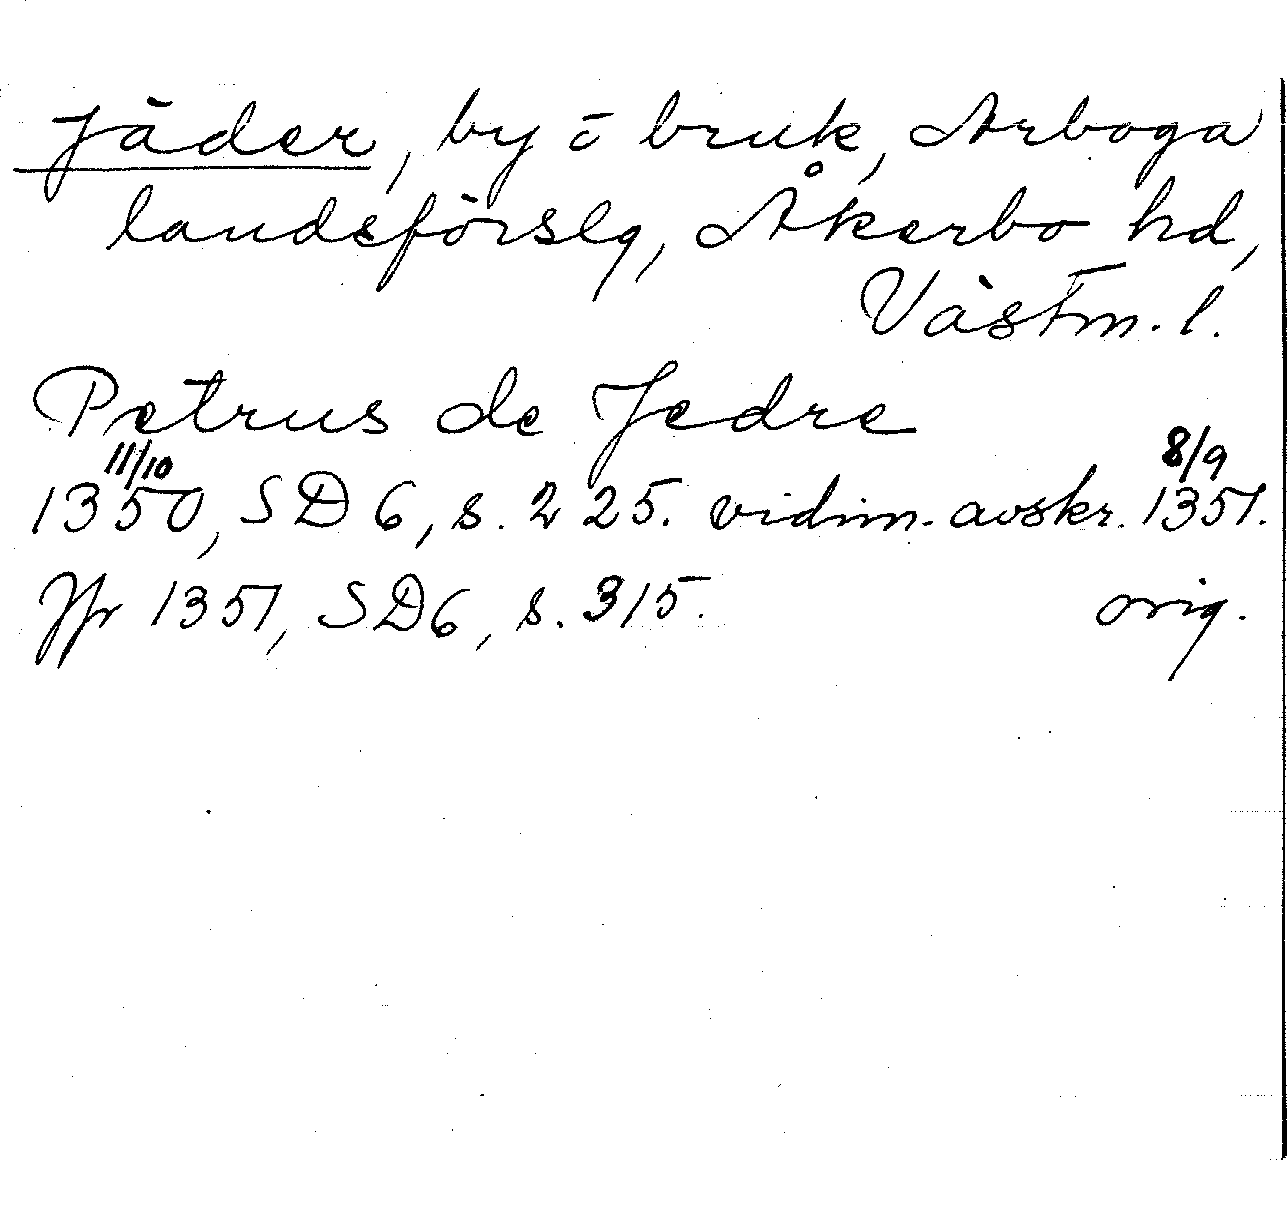 Jäder, by o bruk, Arboga
landsförslg, Åkerbo hd,
Västm. l.
Petrus de Jedre
11/10 8/9
1350, SD 6, s. 225. vidim. avskr. 1351.
Jfr 1351, SD6, s. 315. orig.